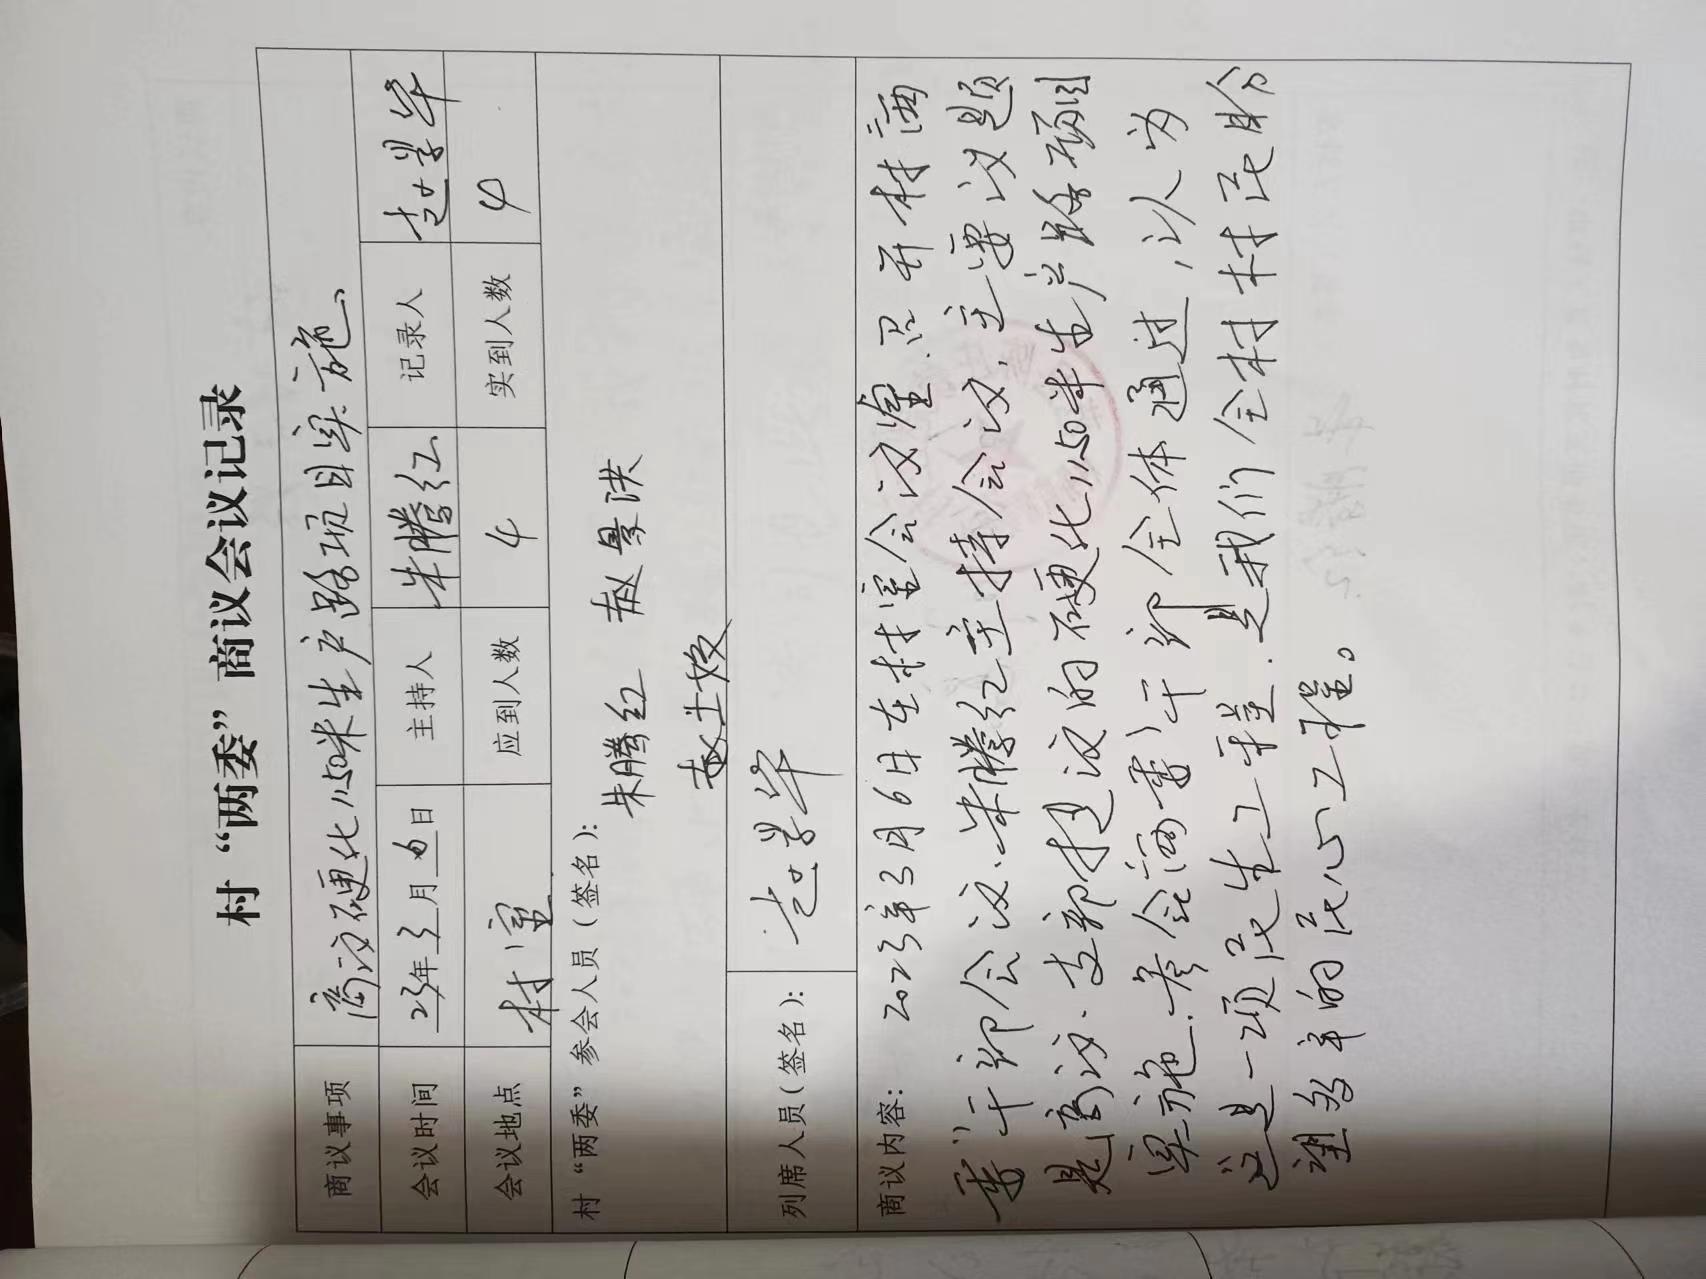 村“两委”商议会议记录
商议事项 商议硬化1150米生产路项目实施、
会议时间 23年3月6日 主持人 朱腾红 记录人 赵学华
会议地点 村室 应到人数 4 实到人数 4
村“两委”参会人员（签名）：
朱腾红 赵景洪
赵士姣
列席人员（签名）： 赵学华
商议内容： 2023年3月6日在村室会议室.召开村两
委”干部会议.朱腾红主持会议.主要议题
是商议.支部提议的硬化1150米生产路项目
实施.参会两委干部全体通过，认为
这是一项民生工程.是我们全村村民盼
望多年的民心工程。